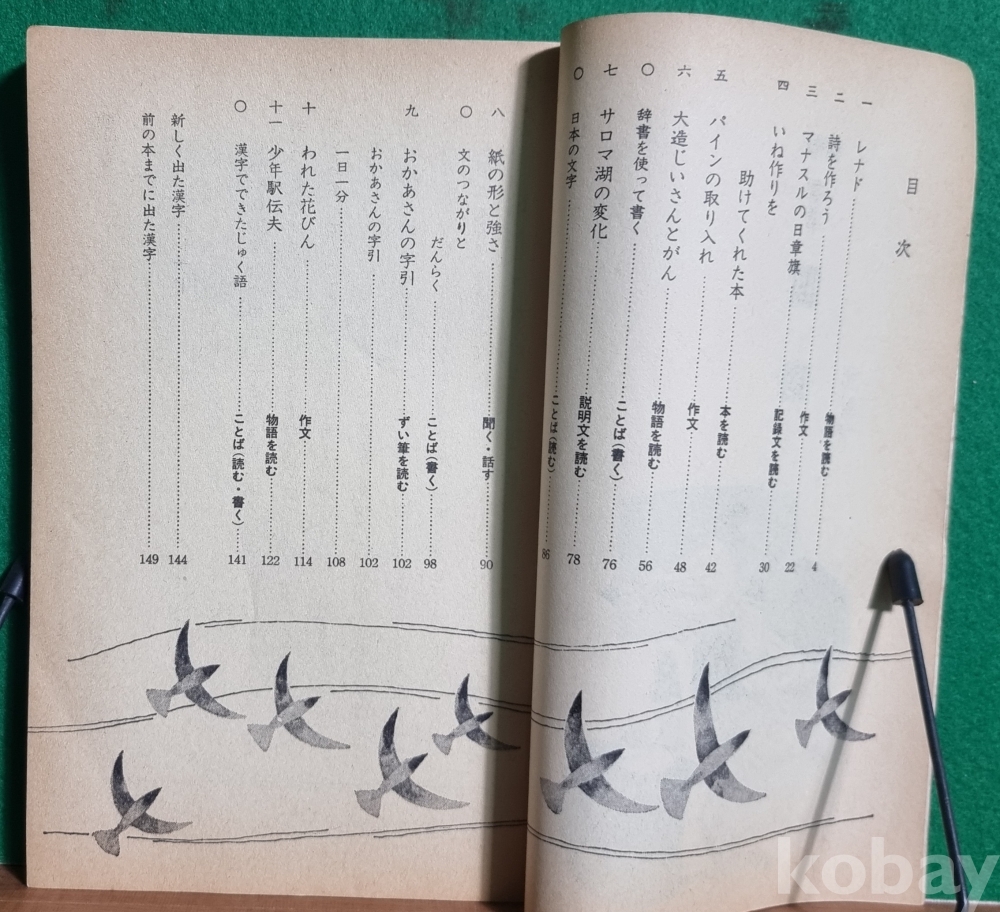 目次
一 レナド……物語を読む……4
二 詩を作ろう……作文……22
三 マナスルの日章旗……記録文を読む……30
四 いね作りを
助けてくれた本……本を読む……42
五 パインの取り入れ……作文……48
六 大造じいさんとがん……物語を読む……56
〇 辞書を使って書く……ことば(書く)……76
七 サロマ湖の変化……説明文を読む……78
〇 日本の文字……ことば(読む)……86
八 紙の形と強さ……聞く・話す……90
〇 文のつながりと
だんらく……ことば(書く)……98
九 おかあさんの字引……ずい筆を読む……102
おかあさんの字引……102
一日一分……108
十 われた花びん……作文……114
十一 少年駅伝夫……物語を読む……122
〇 漢字でできたじゅく語……ことば(読む・書く)……141
新しく出た漢字……144
前の本までに出た漢字……149
kobay